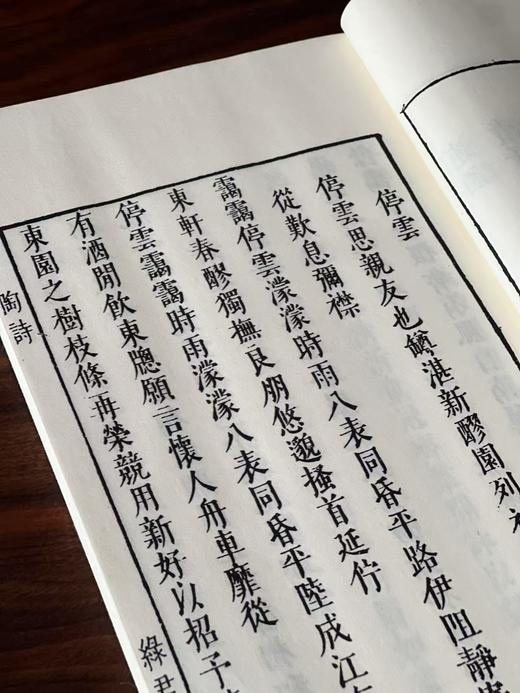 停雲
停雲思親友也罇湛新醪園列
從歎息彌襟
靄靄停雲濛濛時雨八表同昏平路伊阻靜
東軒春醪獨撫良朋悠邈搔首延佇
停雲靄靄時雨濛濛八表同昏平陸成江
有酒閒飲東牕願言懷人舟車靡從
東園之樹枝條再榮競用新好以招予
陶詩
綠君